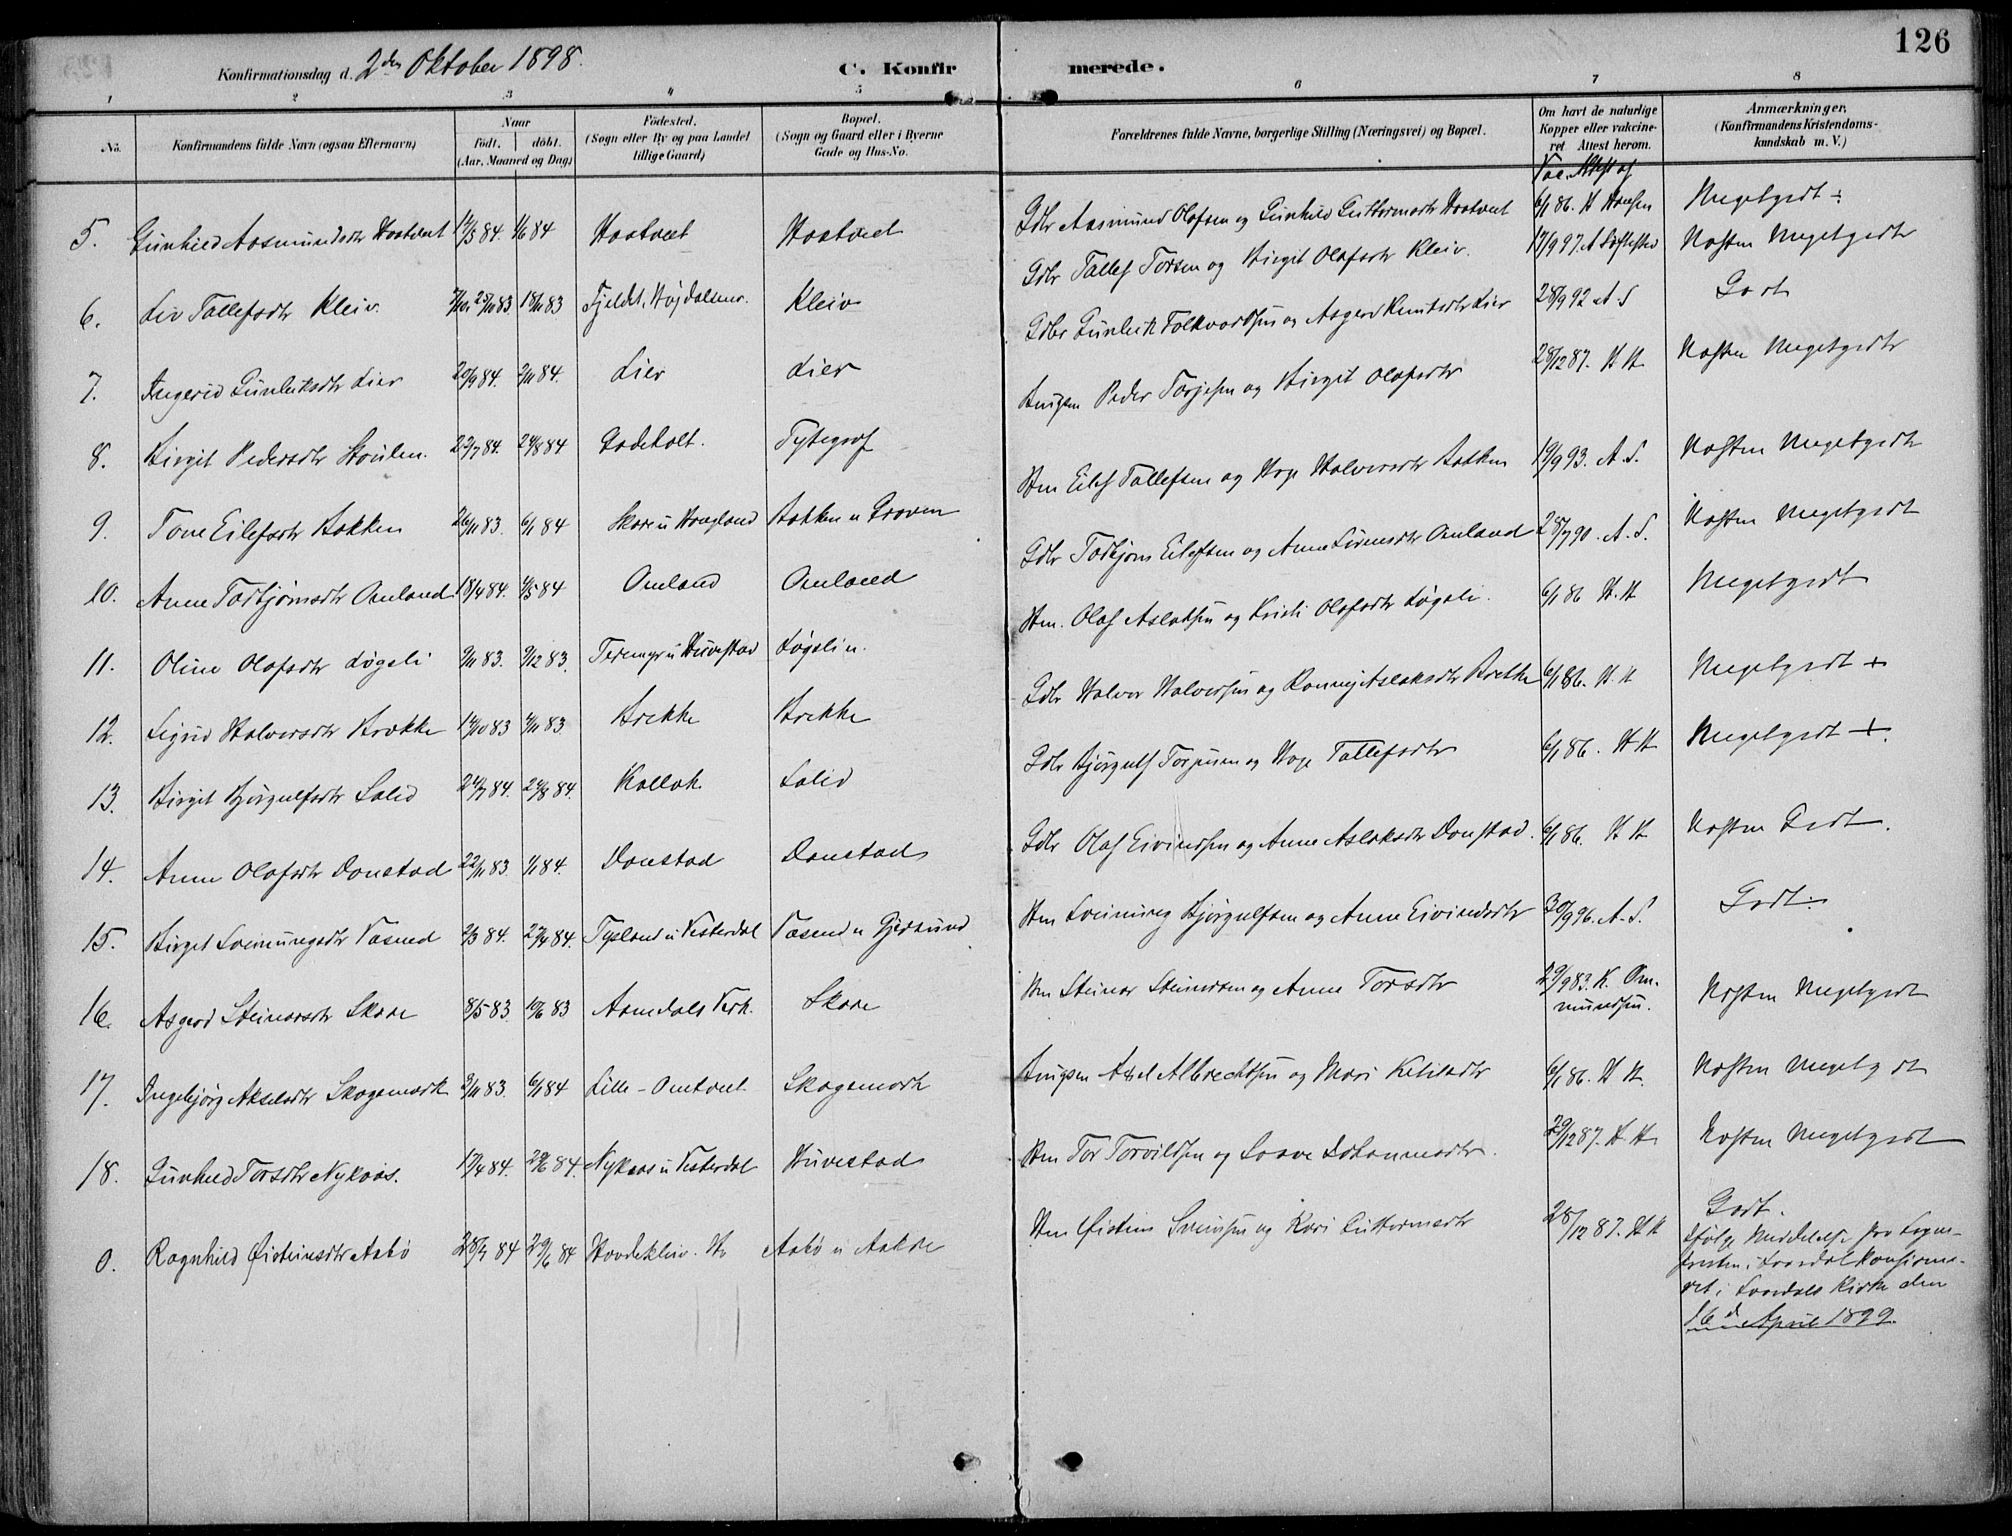 126
Konfirmationsdag d. 2den Oktober 1898.
C. Konfirmerede.
1 2 3 4 5 6 7 8
No.
Konfirmandens fulde Navn (ogsaa Efternavn)
Naar født. døbt. (Aar, Maaned og Dag)
Fødested. (Sogn eller By og paa Landet tillige Gaard)
Bopæl. (Sogn og Gaard eller i Byerne Gade og Hus-No.
Forældrenes fulde Navne, borgerlige Stilling (Næringsvei) og Bopæl.
Om havt de naturlige Kopper eller vaccineret Attest herom.
Anmærkninger. (Konfirmandens Kristendomskundskab m. V.)
Vac. Attest af
5. Gunhild Aasmundsdtr Haatveit 84. 84 Haatveit Haatveit Gdbr Aasmund Olafsen og Gunhild Guttormsdtr Haatveit 6/1 86. H Hansen Megetgodt
6. Liv Tallefsdtr Kleiv. 83 18/11 83 Kleiv Gdbr Tallef Torsen og Birgit Olafsdtr Kleiv. 17/9 97. A Næsten Megetgodt
7. Ingerid Gunleiksdtr Lier 20/9 84. 2/11 84. Lier Lier Gdbr Gunleik og Aasgerd Knutsdtr Lier 28/9 92 A. S Godt
8. Birgit Pedersdtr 22/7 84. 24/8 84 Tytegraf Peder Torjesen og Birgit Olafsdtr 28/12 87. H H Næsten Megetgodt
9. Tone Eilefsdtr Bakken 26/11 83. 6/1 84 Skare u Haugland Bakken u Graven Hm Eilef Tallefsen og Hæge Halvorsdtr Bakken 19/9 93. A. S. Næsten Megetgodt
10. Anne Torbjörnsdtr Omland 18/4 84. 4/5 84 Omland Omland Gdbr Torbjörn Eilefsen og Anne Omland 28/9 90. A. S. Næsten Megetgodt
11. Oline Olafsdtr Løgeli 9/11 83. 9/12 83. u Huvestad Løgeli u. Hm. Olaf Aslaksen og Kristi Olafsdtr Løgeli. 6/1 86 H. H Megetgodt
12. Sigrid Halvorsdtr Brække 14/10 83 4/11 83. Brekke Brekke Gdbr Halvor Halvorsen og Ronnei Aslaksdtr Brekke 6/1 86. H. H Megetgodt +
13. Birgit Bjørgulfsdtr Lalid 24/7 84. 24/8 84. Kallak Lalid Gdbr Bjørgulf Torjusen og Hæge Tallefsdtr 6/1 86. H H Megetgodt +.
14. Anne Olafsdtr Donstad 22/11 83. 1/1 84. Donstad Donstad Gdbr Olaf Eivindsen og Anne Aslaksdtr Donstad. 6/1 86. H H Næsten Godt.
15. Birgit Sveinungsdtr Vasend 2/3 84. 84. Tysland u Vesterdal Vasend u Hm Sveinung Bjørgulfsen og Anne Eivindsdtr 30/9 96. A. S. Godt.
16. Asgerd Steinarsdtr Skare 8/5 83. 10/6 83 Aamdals Verk. Skare Hm Steinar Steinarsen og Anne Torsdtr 29/9 83. K. Ommundsen. Næsten Megetgodt
17. Ingebjörg Akselsdtr Skogsmark 2/11 83. 6/1 84 Lille - Omtveit Skogsmark Axel Albrechtsen og Mari Ketilsdtr 6/1 86. H H. Næsten Megetgodt
18. Gunhild Torsdtr Nykaas. 17/4 84. 84. Nykaas u Vesterdal Huvestad Hm Tor Torvildsen og Johannesdtr. 29/12 87. H. H Næsten Megetgodt
0. Ragnhild Øisteinsdtr Aabø 84 29/6 84 Hovdekleiv. Aabø u Hm Øistein Sveinsen og Kari Guttormsdtr 28/12 87. H H Godt.
Ifølge Meddelelse fra Sogne-
præsten i Laardal konfirme-
ret i Laardals Kirke den
16d April 1899.